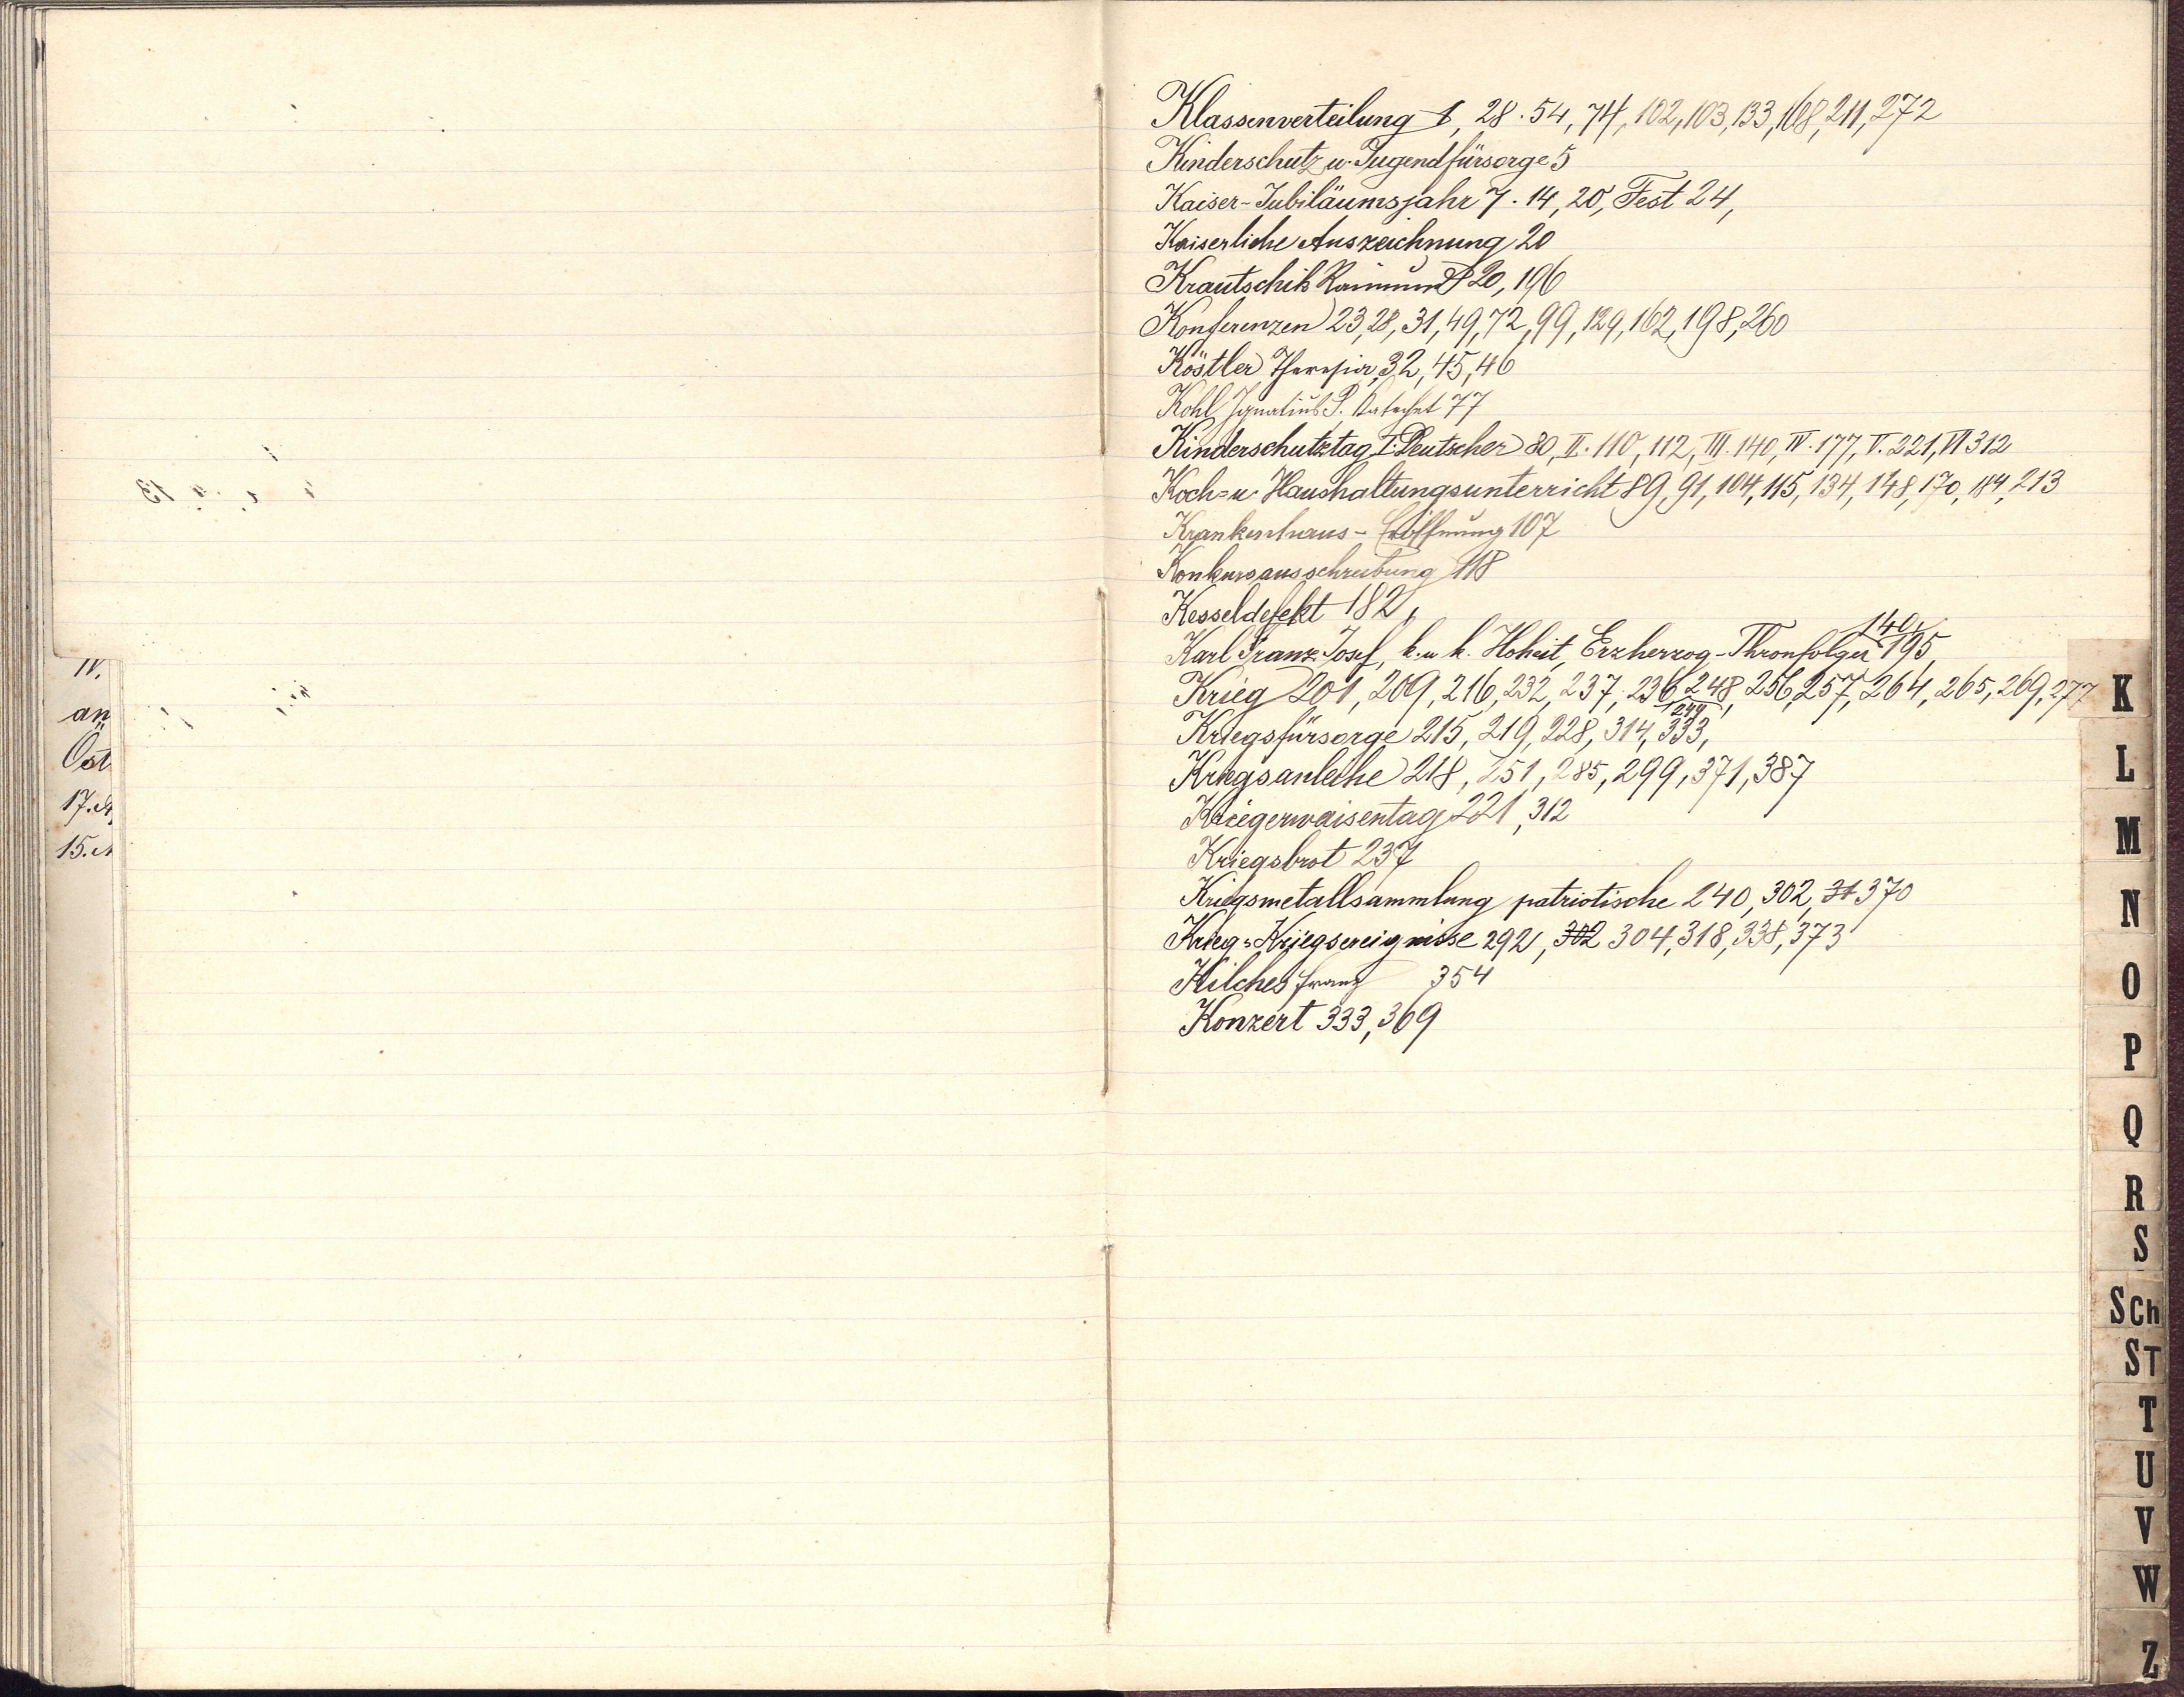 Klassenverteilung 1, 28. 54, 74, 102, 103, 133, 168, 211, 272
Kinderschutz u. Jugendfürsorge 5
Kaiser-Jubiläumsjahr 7. 14, 20, Fest 24,
Kaiserliche Auszeichnung 20
Krautschik Raimund 20, 196
Konferenzen 23, 28, 31, 49, 72, 99, 129, 162, 198, 260
Köstler Theresia, 32, 45, 46
Kohl Ignatius P. Katechet 77
Kinderschutztag I. Deutscher 80, II. 110, 112, III. 140, IV. 177, V. 221, VI 312
Koch- u. Haushaltungsunterricht 89, 91, 104, 115, 134, 148, 170, 184, 213
Krankenhaus- Eröffnung 107
Konkursausschreibung 118
Kesseldefekt 182,
140,
Karl Franz Josef, k. u. k. Hoheit, Erzherzog-Thronfolger 195,
Krieg 201, 209, 216, 232, 237, 236, 248, 256, 257, 264, 265, 269, 277
249
Kriegsfürsorge 215, 219, 228, 314, 333,
Kriegsanleihe 218, 251, 285, 299, 371, 387
Kriegerwaisentag 221, 312
Kriegsbrot 237
Kriegsmetallsammlung patriotische 240, 302, 31 370
Krieg = Kriegsereignisse 292, 302 304, 318, 338, 373
Hilches Franz 354
Konzert 333, 369
IV.
an
Öst
17.
15.
K
L
M
N
O
P
Q
R
S
SCh
ST
T
U
V
W
Z